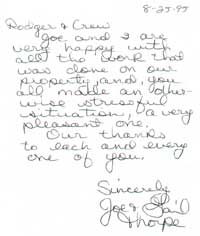 8-25-95
Rodger & Crew
Joe and I are
very happy with
all the work that
was done on our
property and you
all made an other-
wise stressful
situation, a very
pleasant one.
Our thanks
to each and every
one of you.
Sincerely
Joe & Gail
Thorpe